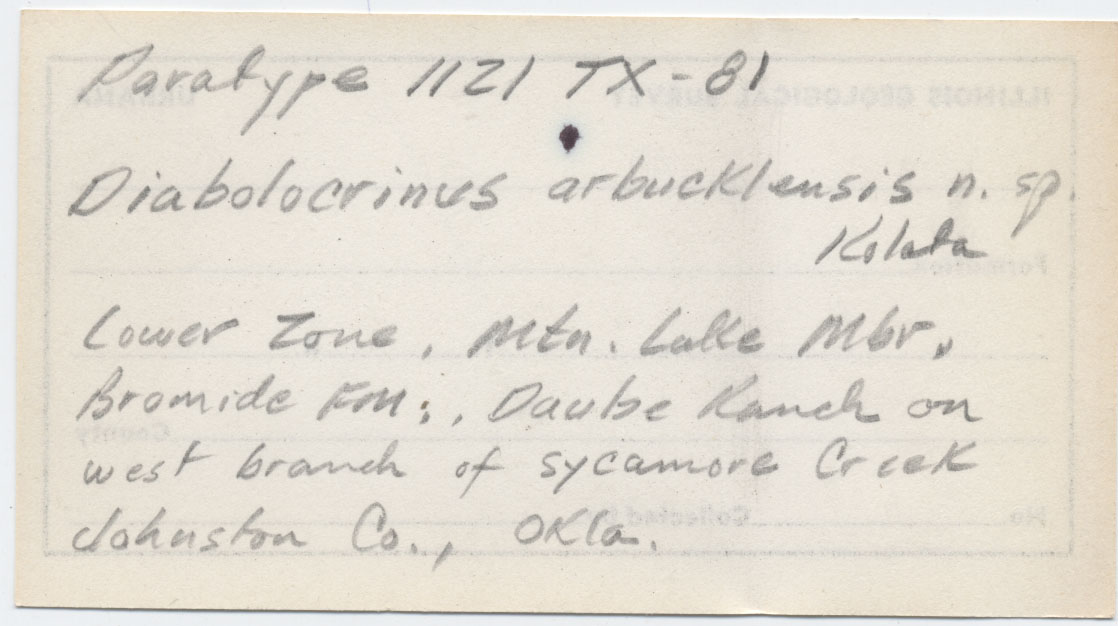 Paratype 1121 TX-81
Diabolocrinus arbucklensis n. sp.
Kolata
Lower Zone, Mtn. Lake Mbr.,
Bromide Fm., Daube Ranch on
west branch of Sycamore Creek
Johnston Co., Okla.
ILLINOIS GEOLOGICAL SURVEY URBANA
Formation
County
No. Collected by